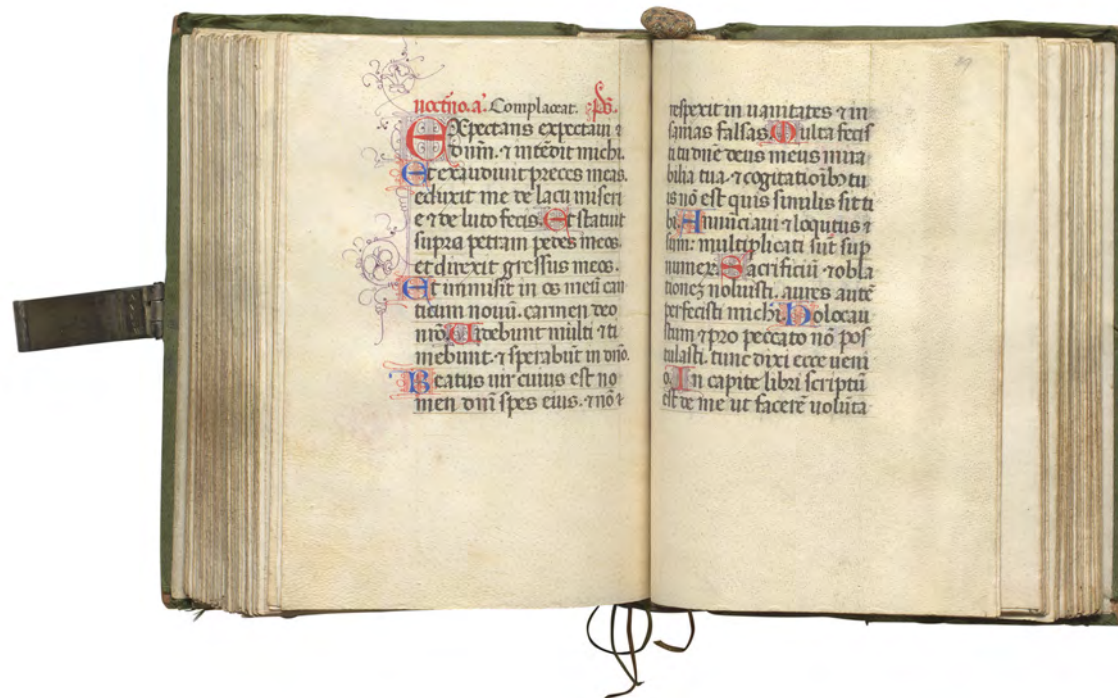 noct̄no. a. Complaceat. p̄s.
Expectans expectaui ⁊
dnm̄. ⁊ intēdit michi.
Et exaudiuit preces meas.
eduxit me de lacu miseri
e ⁊ de luto fecis. Et statuit
supra petram pedes meos.
et direxit gressus meos.
Et inmisit in os meū can
ticum nouū. carmen deo
nrō. Uidebunt multi ⁊ ti
mebunt. ⁊ sperabūt in dnō.
Beatus uir cuius est no
men dnī spes eius. ⁊ nō ⁊
89
respexit in uanitates ⁊ in
sanias falsas. Multa fecis
ti tu dnē deus meus mira
bilia tua. ⁊ cogitatioīb; tu
is nō est quis similis sit ti
bi. Annunciaui ⁊ loqutus ⁊
sum: multiplicati sūt sup
numeꝝ. Sacrificiū ⁊ obla
tionez noluisti. aures autē
perfecisti michi. Holocau
stum ⁊ pro peccato nō pos
tulasti. tunc dixi ecce ueni
o. In capite libri scriptū
est de me ut facerē uolūta